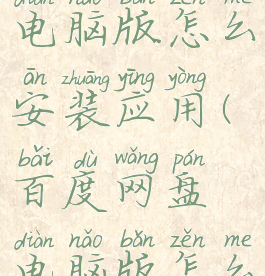 diàn nǎo bǎn zěn me
电脑版怎么
ān zhuāng yīng yòng
安装应用(
bǎi dù wǎng pán
百度网盘
diàn nǎo bǎn zěn me
电脑版怎么